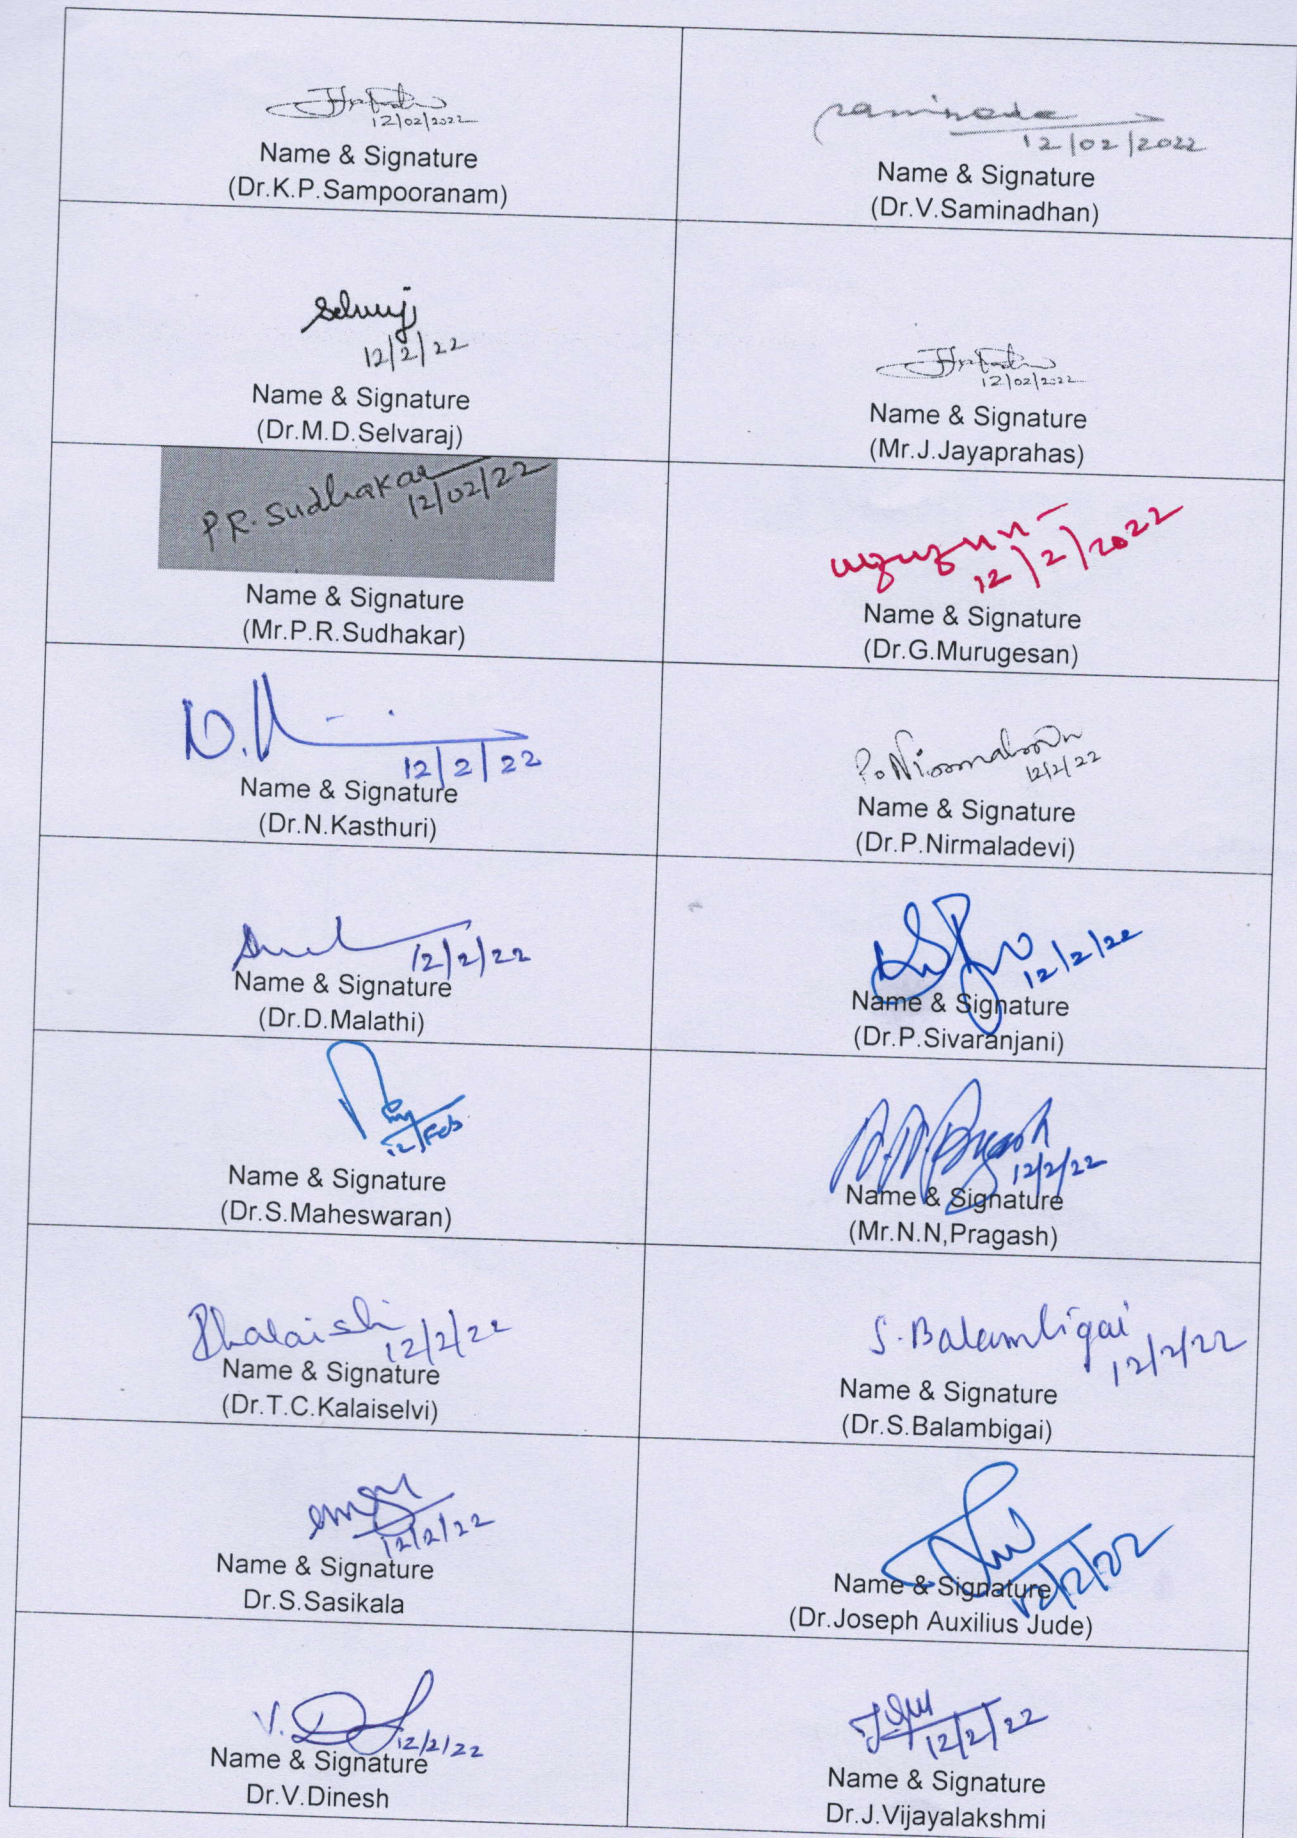 12/02/2022
Name & Signature
(Dr.K.P.Sampooranam)
12/02/2022
Name & Signature
(Dr.V.Saminadhan)
12/2/22
Name & Signature
(Dr.M.D.Selvaraj)
12/02/2022
Name & Signature
(Mr.J.Jayaprahas)
P.R. Sudhakar
12/02/22
Name & Signature
(Mr.P.R.Sudhakar)
12/2/2022
Name & Signature
(Dr.G.Murugesan)
12/2/22
Name & Signature
(Dr.N.Kasthuri)
12/2/22
Name & Signature
(Dr.P.Nirmaladevi)
12/2/22
Name & Signature
(Dr.D.Malathi)
12/2/22
Name & Signature
(Dr.P.Sivaranjani)
12/Feb
Name & Signature
(Dr.S.Maheswaran)
12/2/22
Name & Signature
(Mr.N.N,Pragash)
12/2/22
Name & Signature
(Dr.T.C.Kalaiselvi)
S. Balambigai
12/2/22
Name & Signature
(Dr.S.Balambigai)
12/2/22
Name & Signature
Dr.S.Sasikala
12/2/22
Name & Signature
(Dr.Joseph Auxilius Jude)
12/2/22
Name & Signature
Dr.V.Dinesh
12/2/22
Name & Signature
Dr.J.Vijayalakshmi